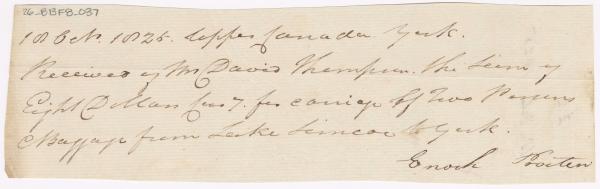 26-BBF8-037
18 Octr. 1825. Upper Canada York.
Received of Mr David Thompson. the Sum of
Eight Dollars for carriage of Two Persons
& Baggage from Lake Simcoe to York.
Enoch